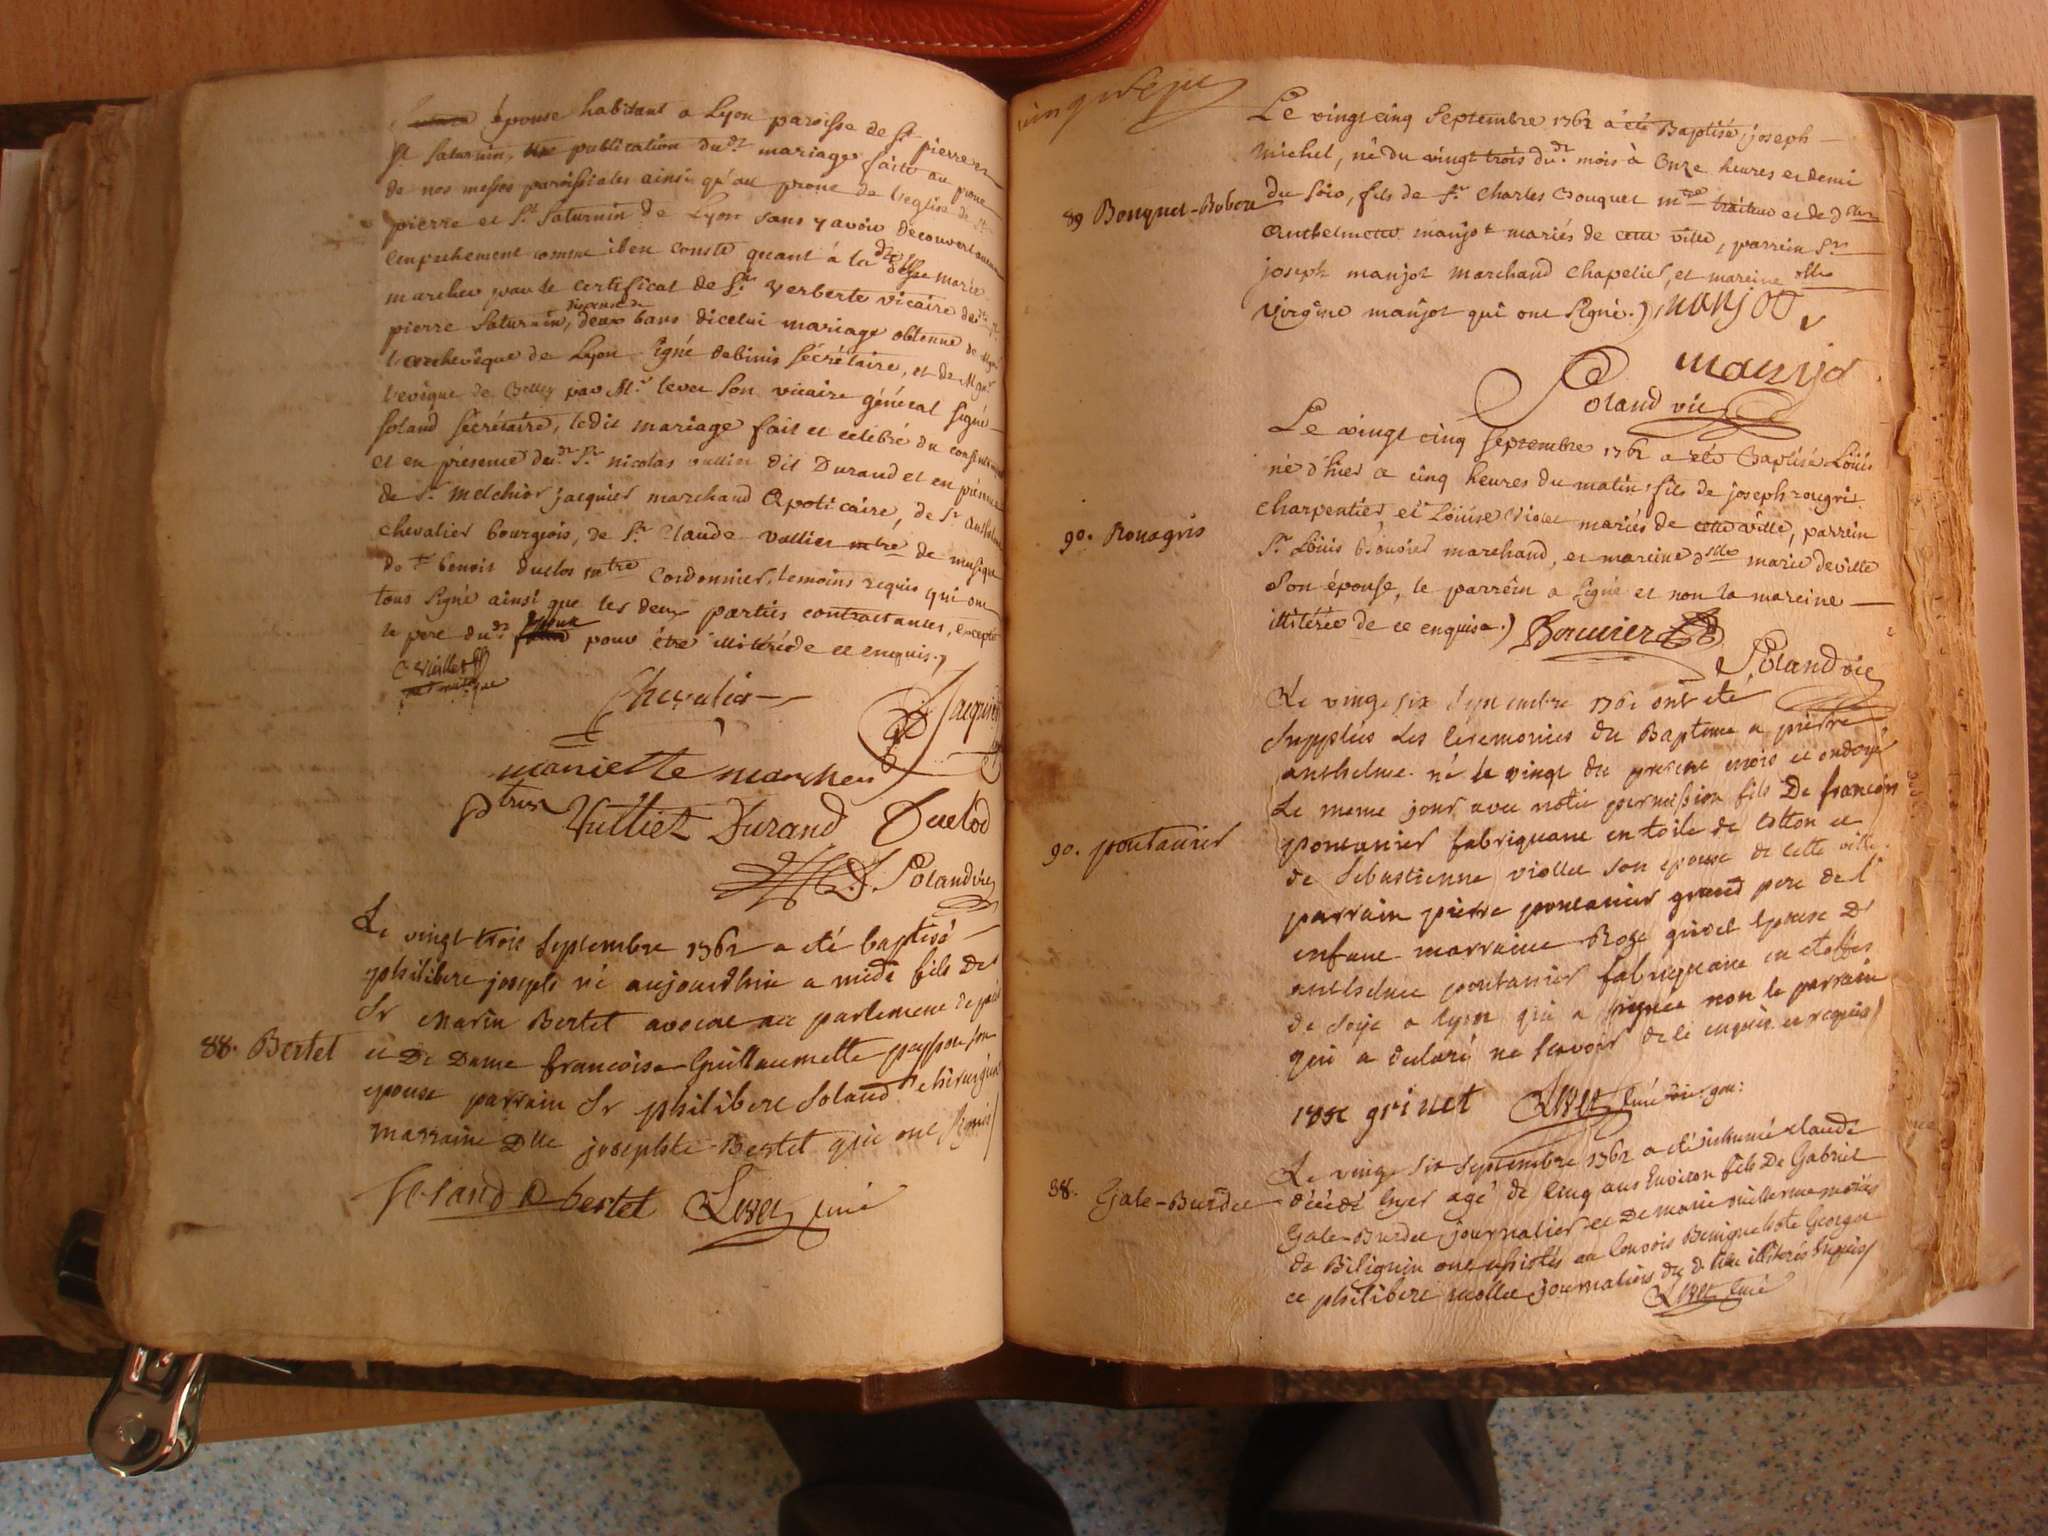 épouse habitant a Lyon paroisse de St pierre et
St Saturnin, publication dudt mariage faite au prone
de nos messes paroissiales ainsi qu'au prone de l'eglise de St
pierre et St Saturnin de Lyon sans y avoir decouvert aucun
empechement comme il en conste quant à la dte Dlle marie
marcher par le certificat de Sr Verberte vicaire de St
pierre Saturnin, dispense de deux bans dicelui mariage obtenue de Mgr
l'archevêque de Lyon signé debinis sécrétaire, et de Mgr
l'evêque de Belley par Mr levet son vicaire général signé
Soland sécrétaire, ledit mariage fait et célébré du consentement
et en présence dudt Sr nicolas vulliet dit Durand et en présence
de Sr melchior jacquier marchand Apoticaire, de Sr anthelme
chevalier bourgeois, de Sr Claude vulliet mtre de musique
de Sr benoit duclos mtre Cordonnier, temoins requis qui ont
tous signé ainsi que les deux parties contractantes, excepté
le pere dudt époux pour être illitéré de ce enquis.
C Vulliet
Chevalier
Jacquier
mariette marcher
Vulliet Durand Duclos
Soland vic
Le vingt trois Septembre 1762 a été baptisé
philibert joseph né aujourdhui a midi fils de
Sr Marin Bertet avocat au parlement de
88. Bertet et de Dame francoise Guillaumette peysson son
epouse parrain Sr philibert Soland chirurgien
marraine Dlle josephte Bertet qui ont signés
Soland bertet Levet curé
cinq sept
Le vingt cinq Septembre 1762 a été Baptisé joseph
michel, né du vingt trois dudt mois à Onze heures et demi
89 Bouquet-Bobou du soir, fils de Sr Charles Bouquet mtre traiteur et de dlle
Anthelmette maujot mariés de cette ville, parrein Sr
joseph maujot marchand chapelier, et mareine dlle
virgine maujot qui ont signé.) maujot
maujot
Soland vic
Le vingt cinq Septembre 1762 a été Baptisé Loüis
né d'hier a cinq heures du matin, fils de joseph rougris
charpentier, et Loüise Violet mariés de cette ville, parrein
90. Rouagris
Sr Loüis Bouvier marchand, et mareine dlle marie deville
son épouse, le parrein a signé et non la mareine
illitérée de ce enquise.) Bouvier
Soland vic
Le vingt six Septembre 1762 ont été
supplées les Ceremonies du Baptême a pierre
anthelme né le vingt du present mois et ondoyé
le meme jour avec notre permission fils de francois
90. pontanier
pontanier fabriquant en toile de cotton et
de Sebastienne viollet son epouse de cette ville.
parrain pierre pontanier grand pere de l'
enfant marraine Rose grivet epouse d'
anthelme pontanier fabriquant en etoffes
de soye a lyon qui a signée non le parrain
qui a declaré ne scavoir de ce enquis et requis
rose grivet Levet curé vic. gen:
Le vingt six Septembre 1762 a été inhumé claude
38. Gale-Burdet décédé hyer agé de cinq ans Environ fils de Gabriel
Gale-Burdet journalier et de marie mariés
de Bilignin ont assistés au convois George
et philibert mollet journaliers illitérés Enquis
Levet curé